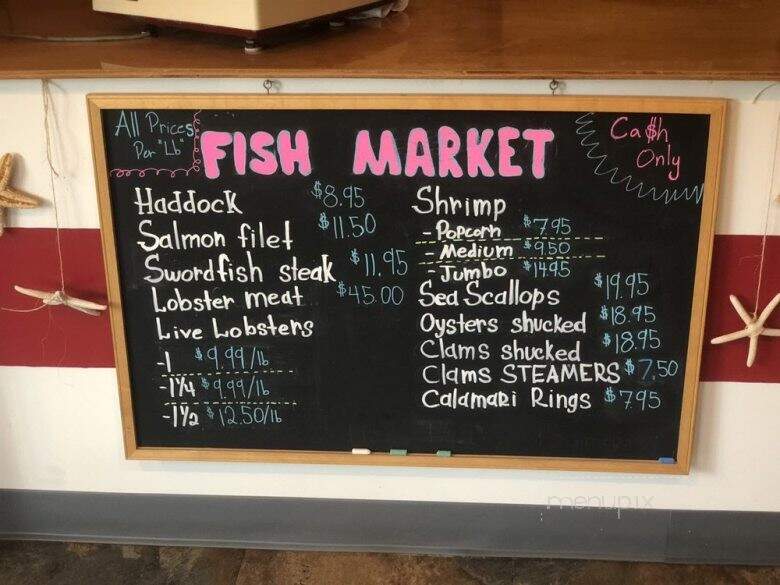 All Prices
Per "Lb"
FISH MARKET
Ca$h
Only
Haddock $8.95
Salmon filet $11.50
Swordfish steak $11.95
Lobster meat $45.00
Live Lobsters
-1 $9.99/lb
-1 1/4 $9.99/lb
-1 1/2 $12.50/lb
Shrimp
- Popcorn $7.95
- Medium $9.50
- Jumbo $14.95
Sea Scallops $19.95
Oysters shucked $18.95
Clams shucked $18.95
Clams STEAMERS $7.50
Calamari Rings $7.95
menupix